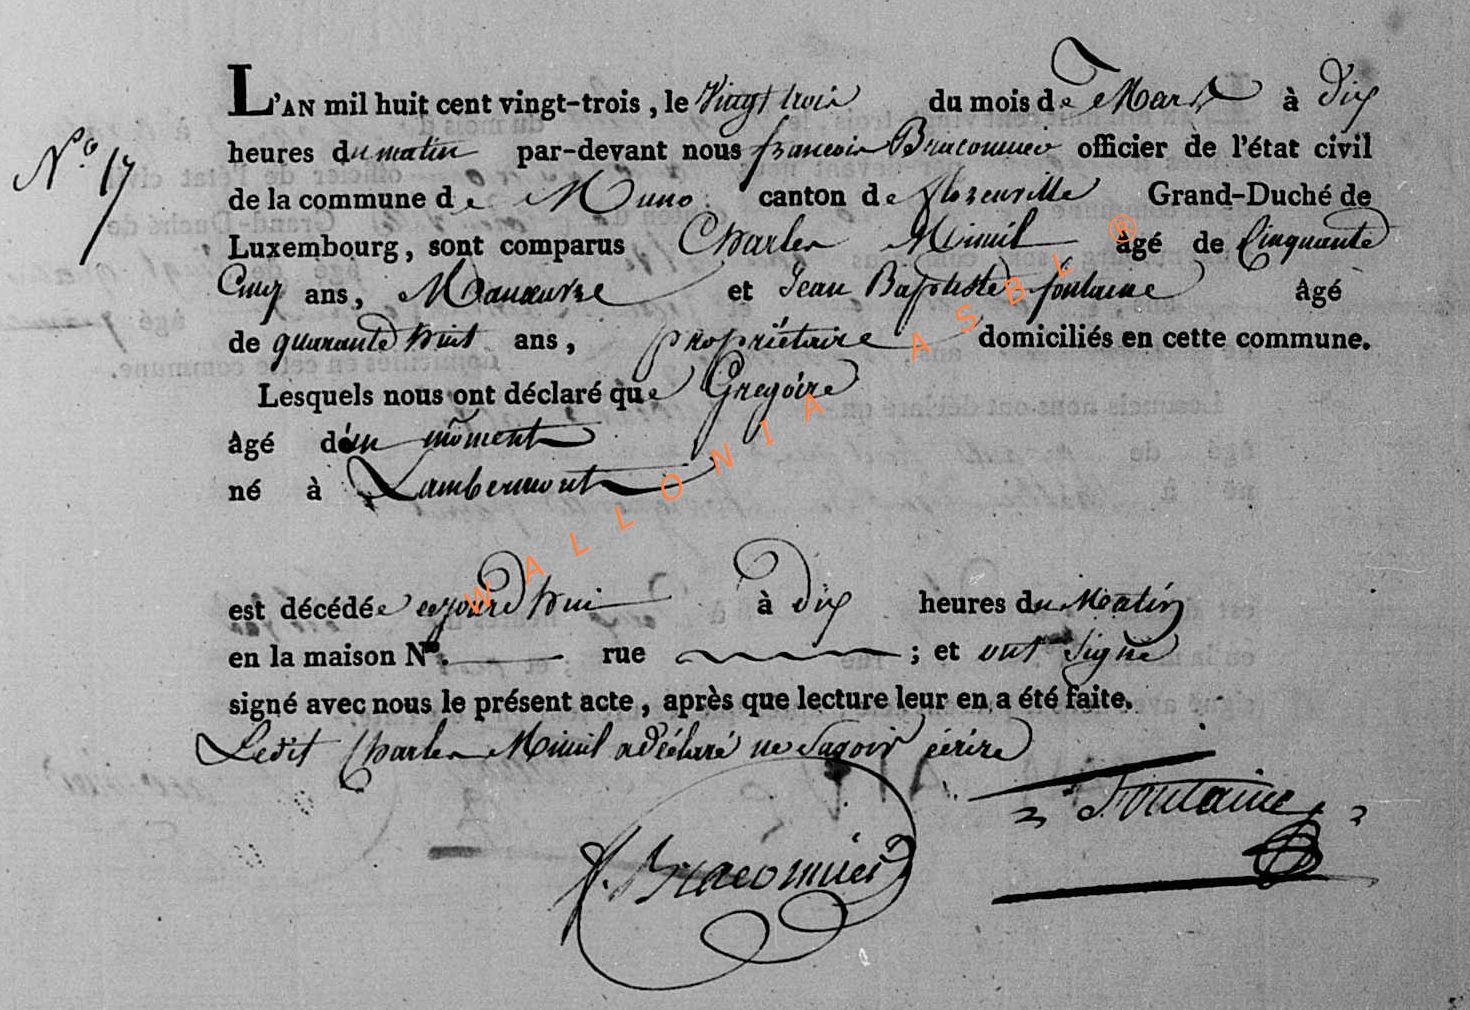 L'AN mil huit cent vingt-trois, le Vingt trois du mois de Mars à dix
N.º 17
heures du matin par-devant nous françois Braconnier officier de l'état civil
de la commune de Muno canton de florenville Grand-Duché de
Luxembourg, sont comparus Charles âgé de Cinquante
Cinq ans, Manœuvre et Jean Baptiste fontaine âgé
de quarante huit ans, propriétaire domiciliés en cette commune.
Lesquels nous ont déclaré que Gregoire
âgé d'un môment
né à Lambermont
est décédé cejourd'hui à dix heures du Matin
en la maison Nº. rue ; et ont Signé
signé avec nous le présent acte, après que lecture leur en a été faite.
Ledit Charles a déclaré ne Savoir écrire
f. Braconnier
Fontaine
WALLONIA ASBL ®